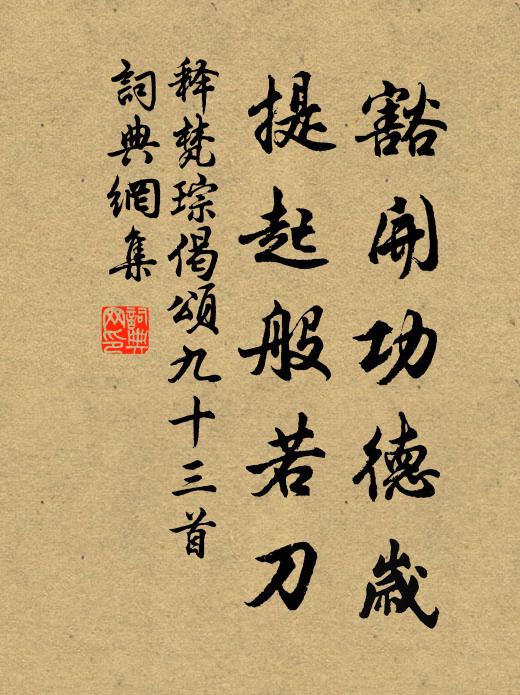 豁開功德歲
提起般若刀
释梵琮偈頌九十三首
詞典網集
詞典網印